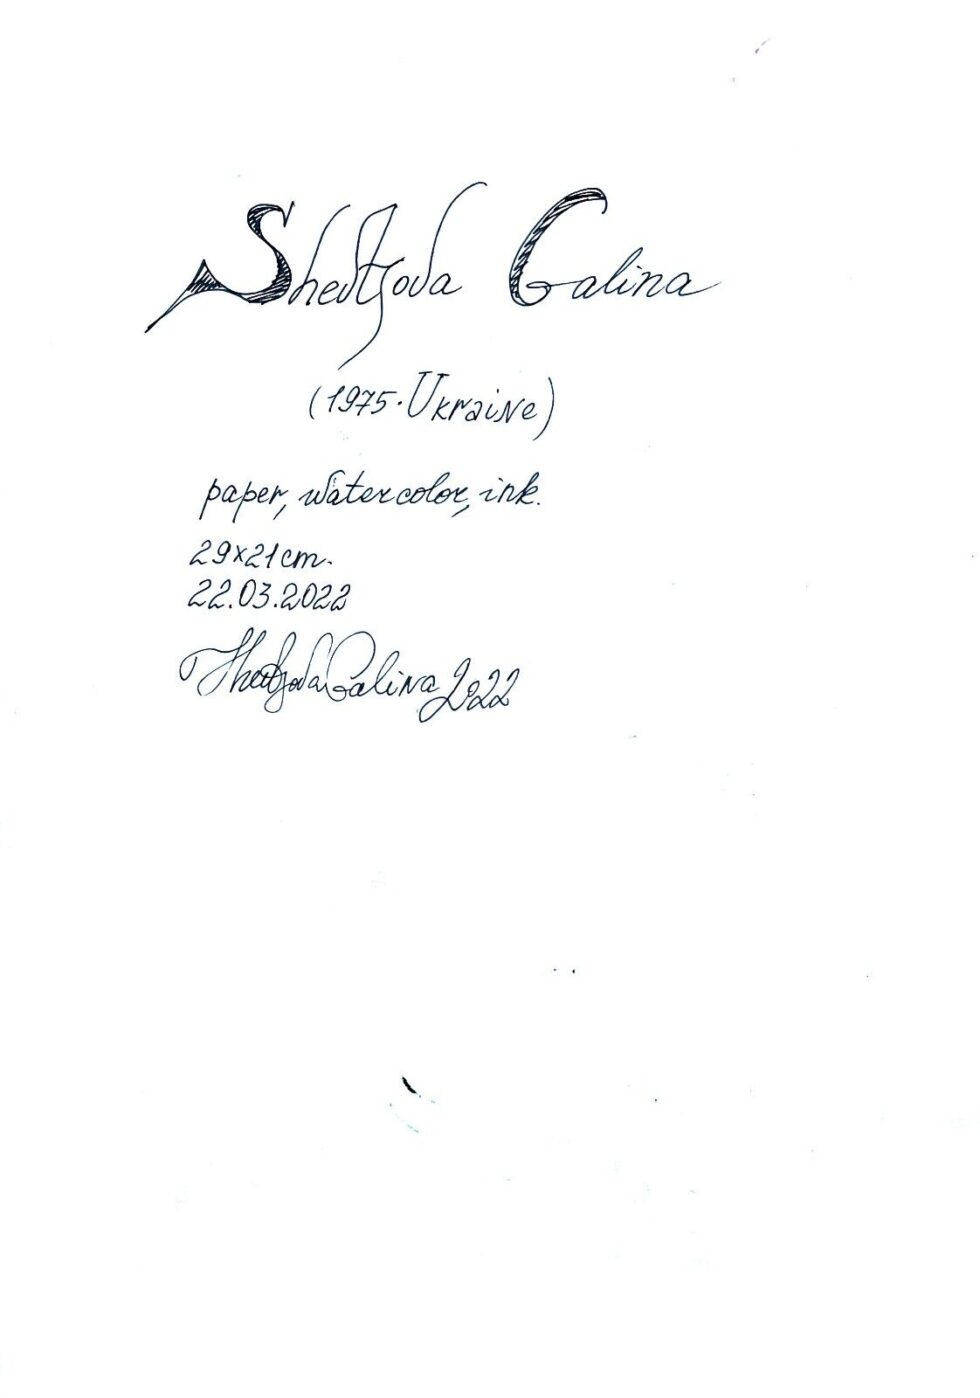 Shevtsova Galina
(1975. Ukraine)
paper, watercolor, ink.
29x21cm.
22.03.2022
Shevtsova Galina 2022